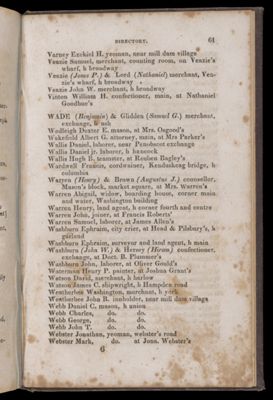 DIRECTORY. 61
Varney Ezekiel H. yeoman, near mill dam village
Veazie Samuel, merchant, counting room, on Veazie's
wharf, h broadway
Veazie (Jones P.) & Lord (Nathaniel) merchant, Vea-
zie's wharf, h broadway
Veazie John W. merchant, h broadway
Vinton William H. confectioner, main, at Nathaniel
Goodhue's
WADE (Benjamin) & Glidden (Samuel G.) merchant,
exchange, h ash
Wadleigh Dexter E. mason, at Mrs. Osgood's
Wakefield Albert G. attorney, main, at Mrs Parker's
Wallis Daniel, laborer, near Penobscot exchange
Wallis Daniel jr. laborer, h hancock
Wallis Hugh B. teamster, at Reuben Bagley's
Wardwell Francis, cordwainer, Kenduskeag bridge, h
columbia
Warren (Henry) & Brown (Augustus J.) counsellor,
Mason's block, market square, at Mrs. Warren's
Warren Abigail, widow, boarding house, corner main
and water, Washington building
Warren Henry, land agent, h corner fourth and centre
Warren John, joiner, at Francis Roberts'
Warren Samuel, laborer, at James Allen's
Washburn Ephraim, city crier, at Head & Pilsbury's, h
garland
Washburn Ephraim, surveyor and land agent, h main
Washburn (John W.) & Hersey (Hiram,) confectioner,
exchange, at Doct. B. Plummer's
Washburn John, laborer, at Oliver Gould's
Waterman Henry P. painter, at Joshua Grant's
Watson David, merchant, h harlow
Watson James C. shipwright, h Hampden road
Weatherbee Washington, merchant, h york
Weatherbee John B. innholder, near mill dam village
Webb Daniel C. mason, h union
Webb Charles, do. do.
Webb George, do. do.
Webb John T. do. do.
Webster Jonathan, yeoman, webster's road
Webster Mark, do. at Jona. Webster's
6